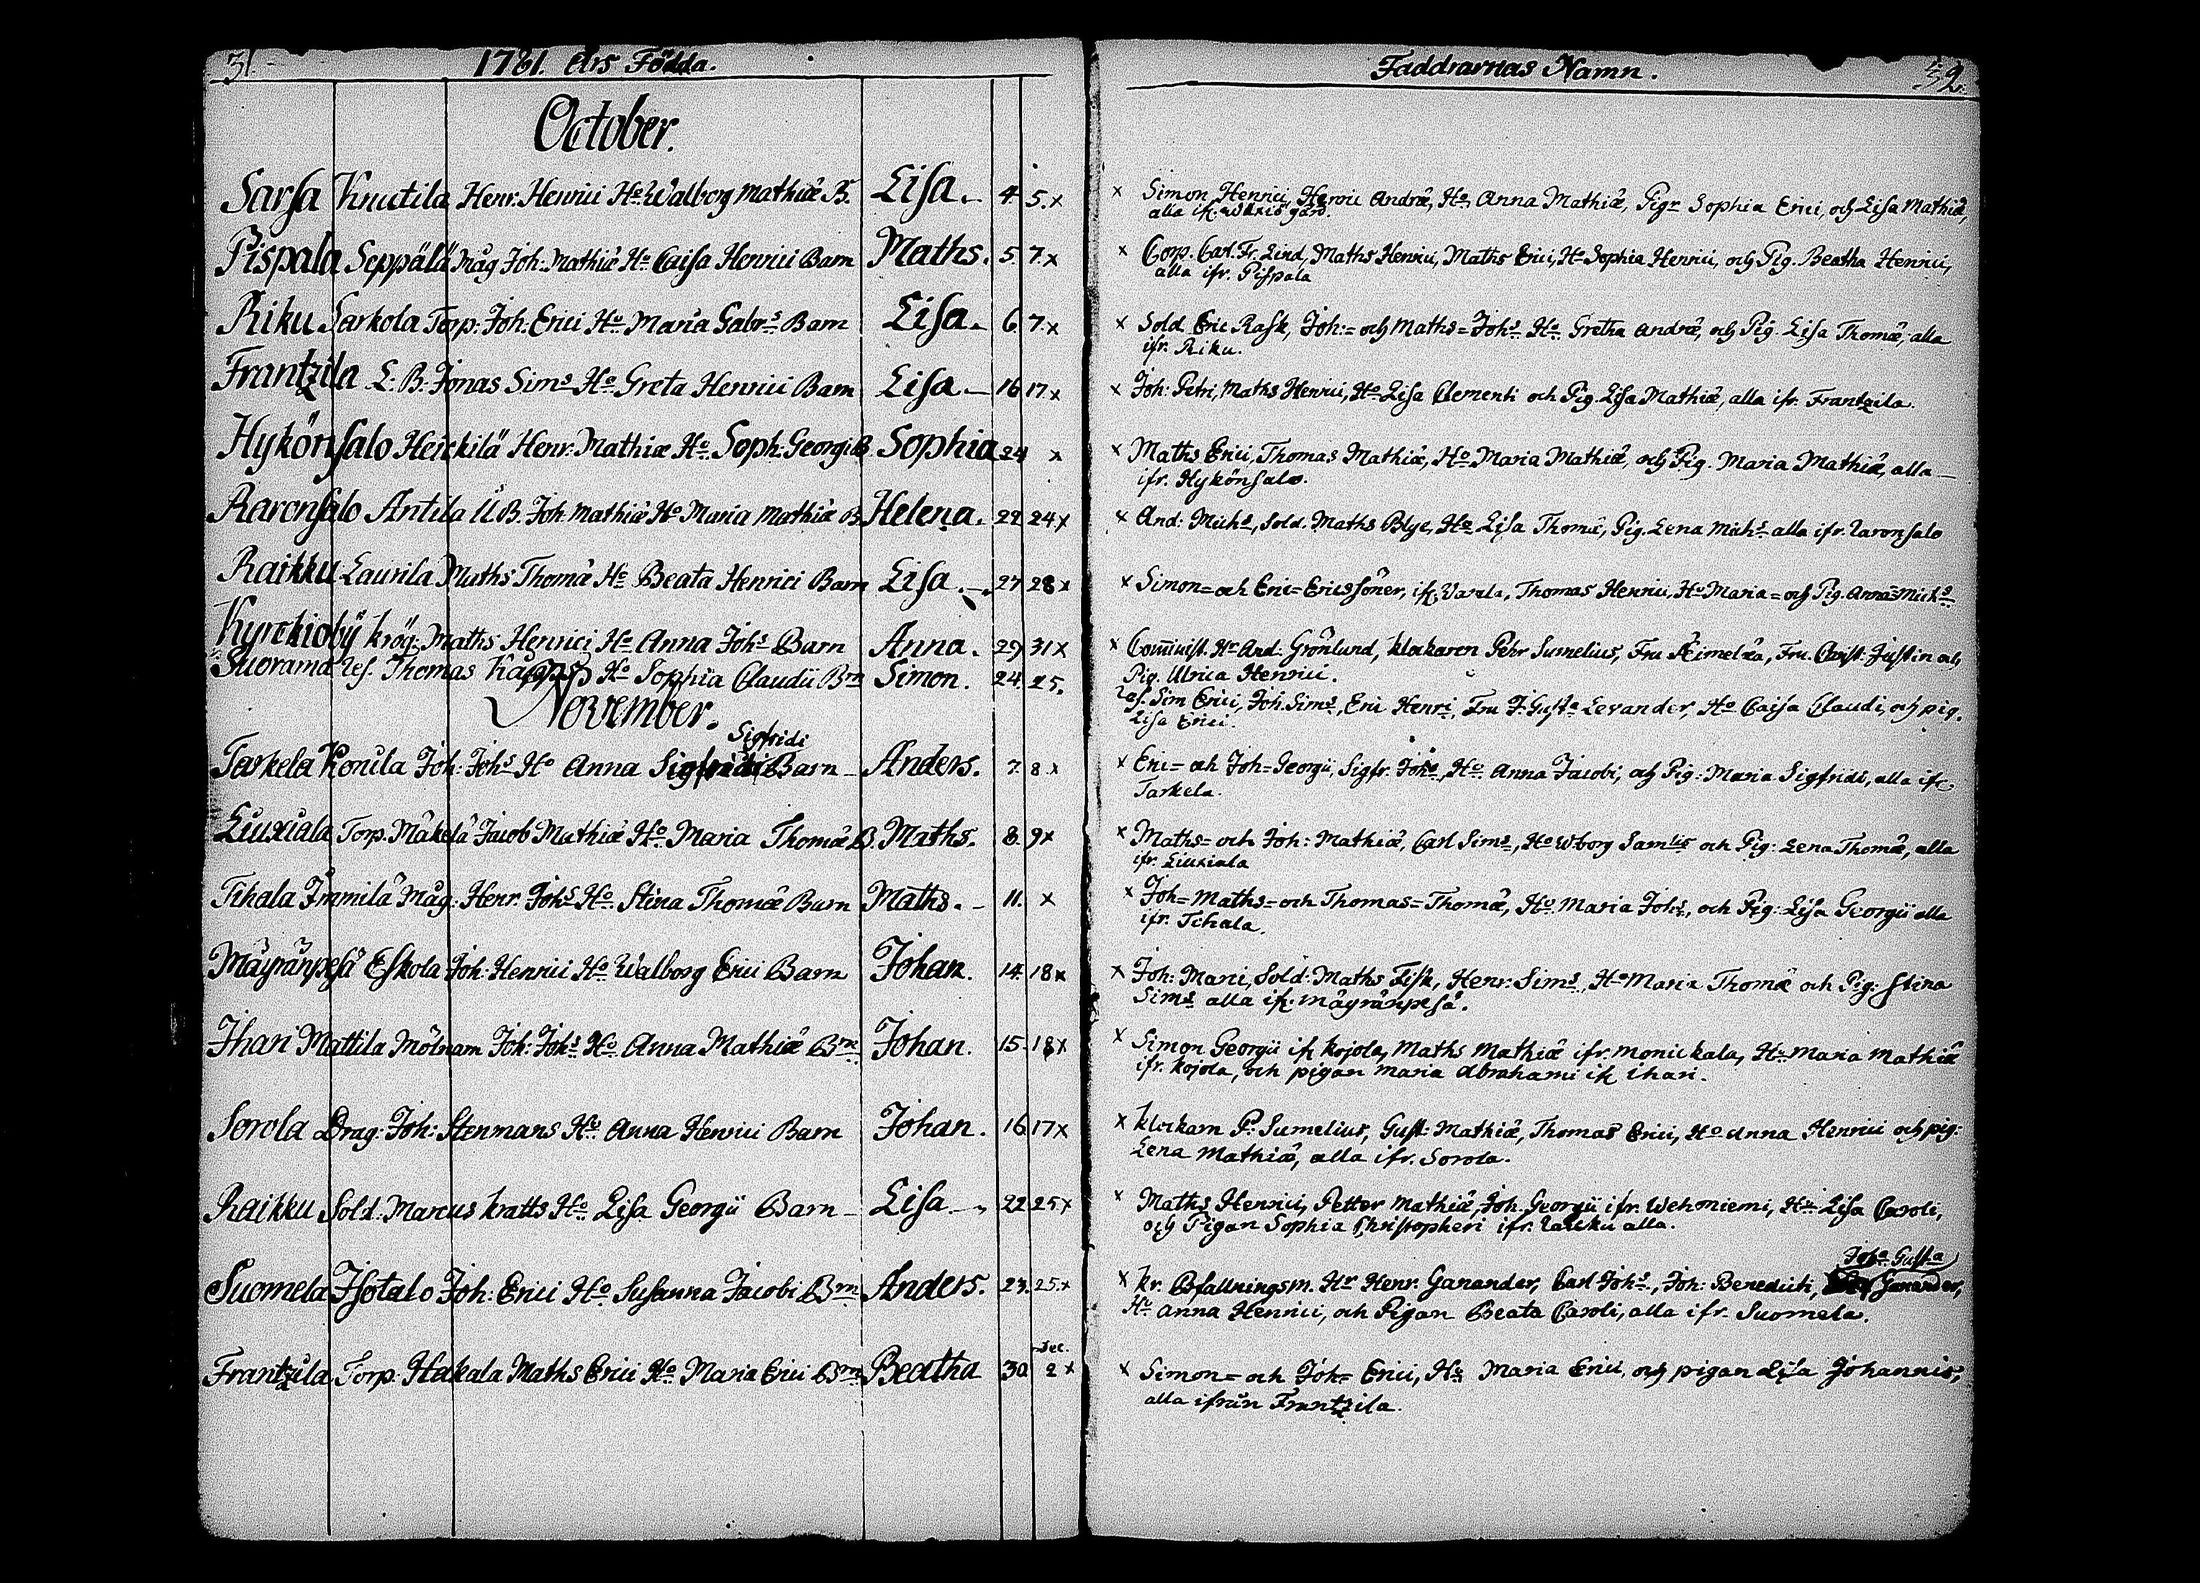 31. 1761. Års Födda.
October.
Sarsa Knutila Henr. Henrici Ho Walborg Mathiæ B. Lisa. 4 5. x
Pispala Seppälä Måg Joh: Mathiæ Ho Caisa Henrici Barn Maths. 5. 7. x
Riku Sarkola Torp: Joh: Erici Ho Maria Gabrs Barn Lisa. 6 7. x
Frantzila L. B. Jonas Sims Ho Greta Henrici Barn Lisa. 16 17. x
Hykönsalo Heickilä Henr. Mathiæ Ho Soph. Georgi B Sophia 24 x
Raronsalo Antila U B. Joh Mathiæ Ho Maria Mathiæ B Helena. 22 24 x
Raikku Laurila Maths Thomæ Ho Beata Henrici Barn Lisa. 27 28 x
Kyrckioby krög: Maths Henrici Ho Anna Johs Barn Anna. 29 31 x
Suorama Thomas Ho Sophia Claudii Brn Simon. 24. 25.
November.
Sigfridi
Tarkela Konila Joh: Johs Ho Anna Sigfridi Barn Anders. 7. 8 x
Liuxiala Torp. Mäkelä Jacob Mathiæ Ho Maria Thomæ B. Maths. 8. 9 x
Tihala Immilä Måg: Henr. Johs Ho Stina Thomæ Barn Maths. 11. x
Mäyränpesä Eskola Joh: Henrici Ho Walborg Erici Barn Johan. 14. 18 x
Ihari Mattila Mölnam Joh: Johs Ho Anna Mathiæ Brn Johan. 15. 18 x
Sorola Drag: Joh: Stenmans Ho Anna Henrici Barn Johan. 16 17 x
Raikku Sold: Marcus Kratts Ho Lisa Georgii Barn Lisa 22 25 x
Suomela Isotalo Joh: Erici Ho Susanna Jacobi Brn Anders. 23. 25. x
Dec.
Frantzila Torp: Hakala Maths Erici Ho Maria Erici Brn Beatha 30 2 x
Faddrarnas Namn. 32.
x Simon Henrici, Henric Andræ, Ho Anna Mathiæ, Pigr Sophia Erici, och Lisa Mathiæ,
alla gård.
x Corp. Carl. Fr. Lind, Maths Henrici, Maths Erici, Ho Sophia Henrici, och Pig. Beatha Henrici,
alla ifr. Pispala
x Sold Eric Rask, Joh:= och Maths= Johs Ho Gretha Andræ, och Pig: Lisa Thomæ, alla
ifr. Riku.
x Joh: Petri, Maths Henrici, Ho Lisa Clementi och Pig. Lisa Mathiæ, alla ifr. Frantzila.
x Maths Erici, Thomas Mathiæ, Ho Maria Mathiæ, och Pig. Maria Mathiæ, alla
ifr. Hykönsalo.
x And: Michs, Sold. Maths Blye, Ho Lisa Thomæ, Pig. Lena Michs alla ifr. Raronsalo
x Simon= och Eric= Ericssöner, ifr. Varala, Thomas Henrici, Ho Maria= och Pig. Anna= Michs
x Hr And. Grönlund, klockaren Pehr Sumelius, Fru och
Pig. Ulrica Henrici.
Sim Erici, Joh. Sims, Eric Henri, Fru J. Gusta Levander, Ho Caisa Claudi, och pig.
Lisa Erici.
x Eric= och Joh= Georgii, Sigfr. Johs, Ho Anna Jacobi, och Pig: Maria Sigfridi, alla ifr
Tarkela.
x Maths= och Joh: Mathiæ, Carl Sims, Ho Wborg Samlis och Pig: Lena Thomæ, alla
ifr. Liuxiala
x Joh= Maths= och Thomas= Thomæ, Ho Maria Johs, och Pig: Lisa Georgii alla
ifr. Tihala.
x Joh: Mani, Sold: Maths Fisk, Henr: Sims, Ho Maria Thomæ och Pig: Stina
Sims alla ifr. Mäyränpesä.
x Simon Georgii ifr Kojola, Maths Mathiæ ifr. Monickala, Ho Maria Mathiæ
ifr. Kojola, och pigan Maria Abrahami ifr ihari.
x klockarn P. Sumelius, Gust: Mathiæ, Thomas Erici, Ho Anna Henrici och pig:
Lena Mathiæ, alla ifr. Sorola.
x Maths Henrici, Petter Mathiæ, Joh. Georgii ifr. Wehoniemi, Ho Lisa Caroli,
och Pigan Sophia Christopheri ifr. Raicku alla.
Joha Gusta
x kr. Bfallningsm. Hr Henr. Ganander, Carl Johs, Joh: Benedicti, Ganander,
Ho Anna Henrici, och Pigan Beata Caroli, alla ifr. Suomela.
x Simon= och Joh= Erici, Ho Maria Erici, och pigan Lisa Johannis,
alla ifrån Frantzila.